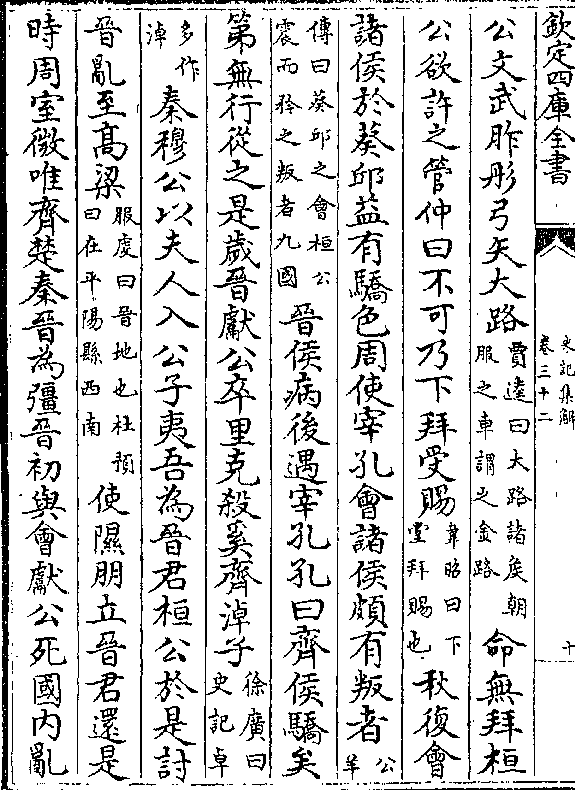 欽定四庫全書
史記集解
卷三十二
十
公文武胙彤弓矢大路賈逵曰大路諸侯朝服之車謂之金路命無拜桓
公欲許之管仲曰不可乃下拜受賜韋昭曰下堂拜賜也秋復會
諸侯於葵邱益有驕色周使宰孔會諸侯頗有叛者公羊
傳曰葵邱之會桓公震而矜之叛者九國晉侯病後遇宰孔孔曰齊侯驕矣
第無行從之是歲晉獻公卒里克殺奚齊淖子徐廣曰史記卓
多作淖秦穆公以夫人入公子夷吾為晉君桓公於是討
晉亂至髙梁服虔曰晉地也杜預曰在平陽縣西南使隰朋立晉君還是
時周室微唯齊楚秦晉為彊晉初與會獻公死國內亂